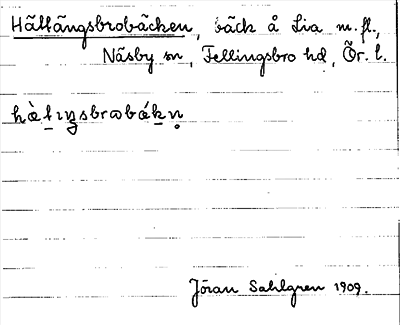 Hällängsbrobäcken, bäck å Lia m.fl.,
Näsby sn, Fellingsbro hd, Ör. l.
Jöran Sahlgren 1909.